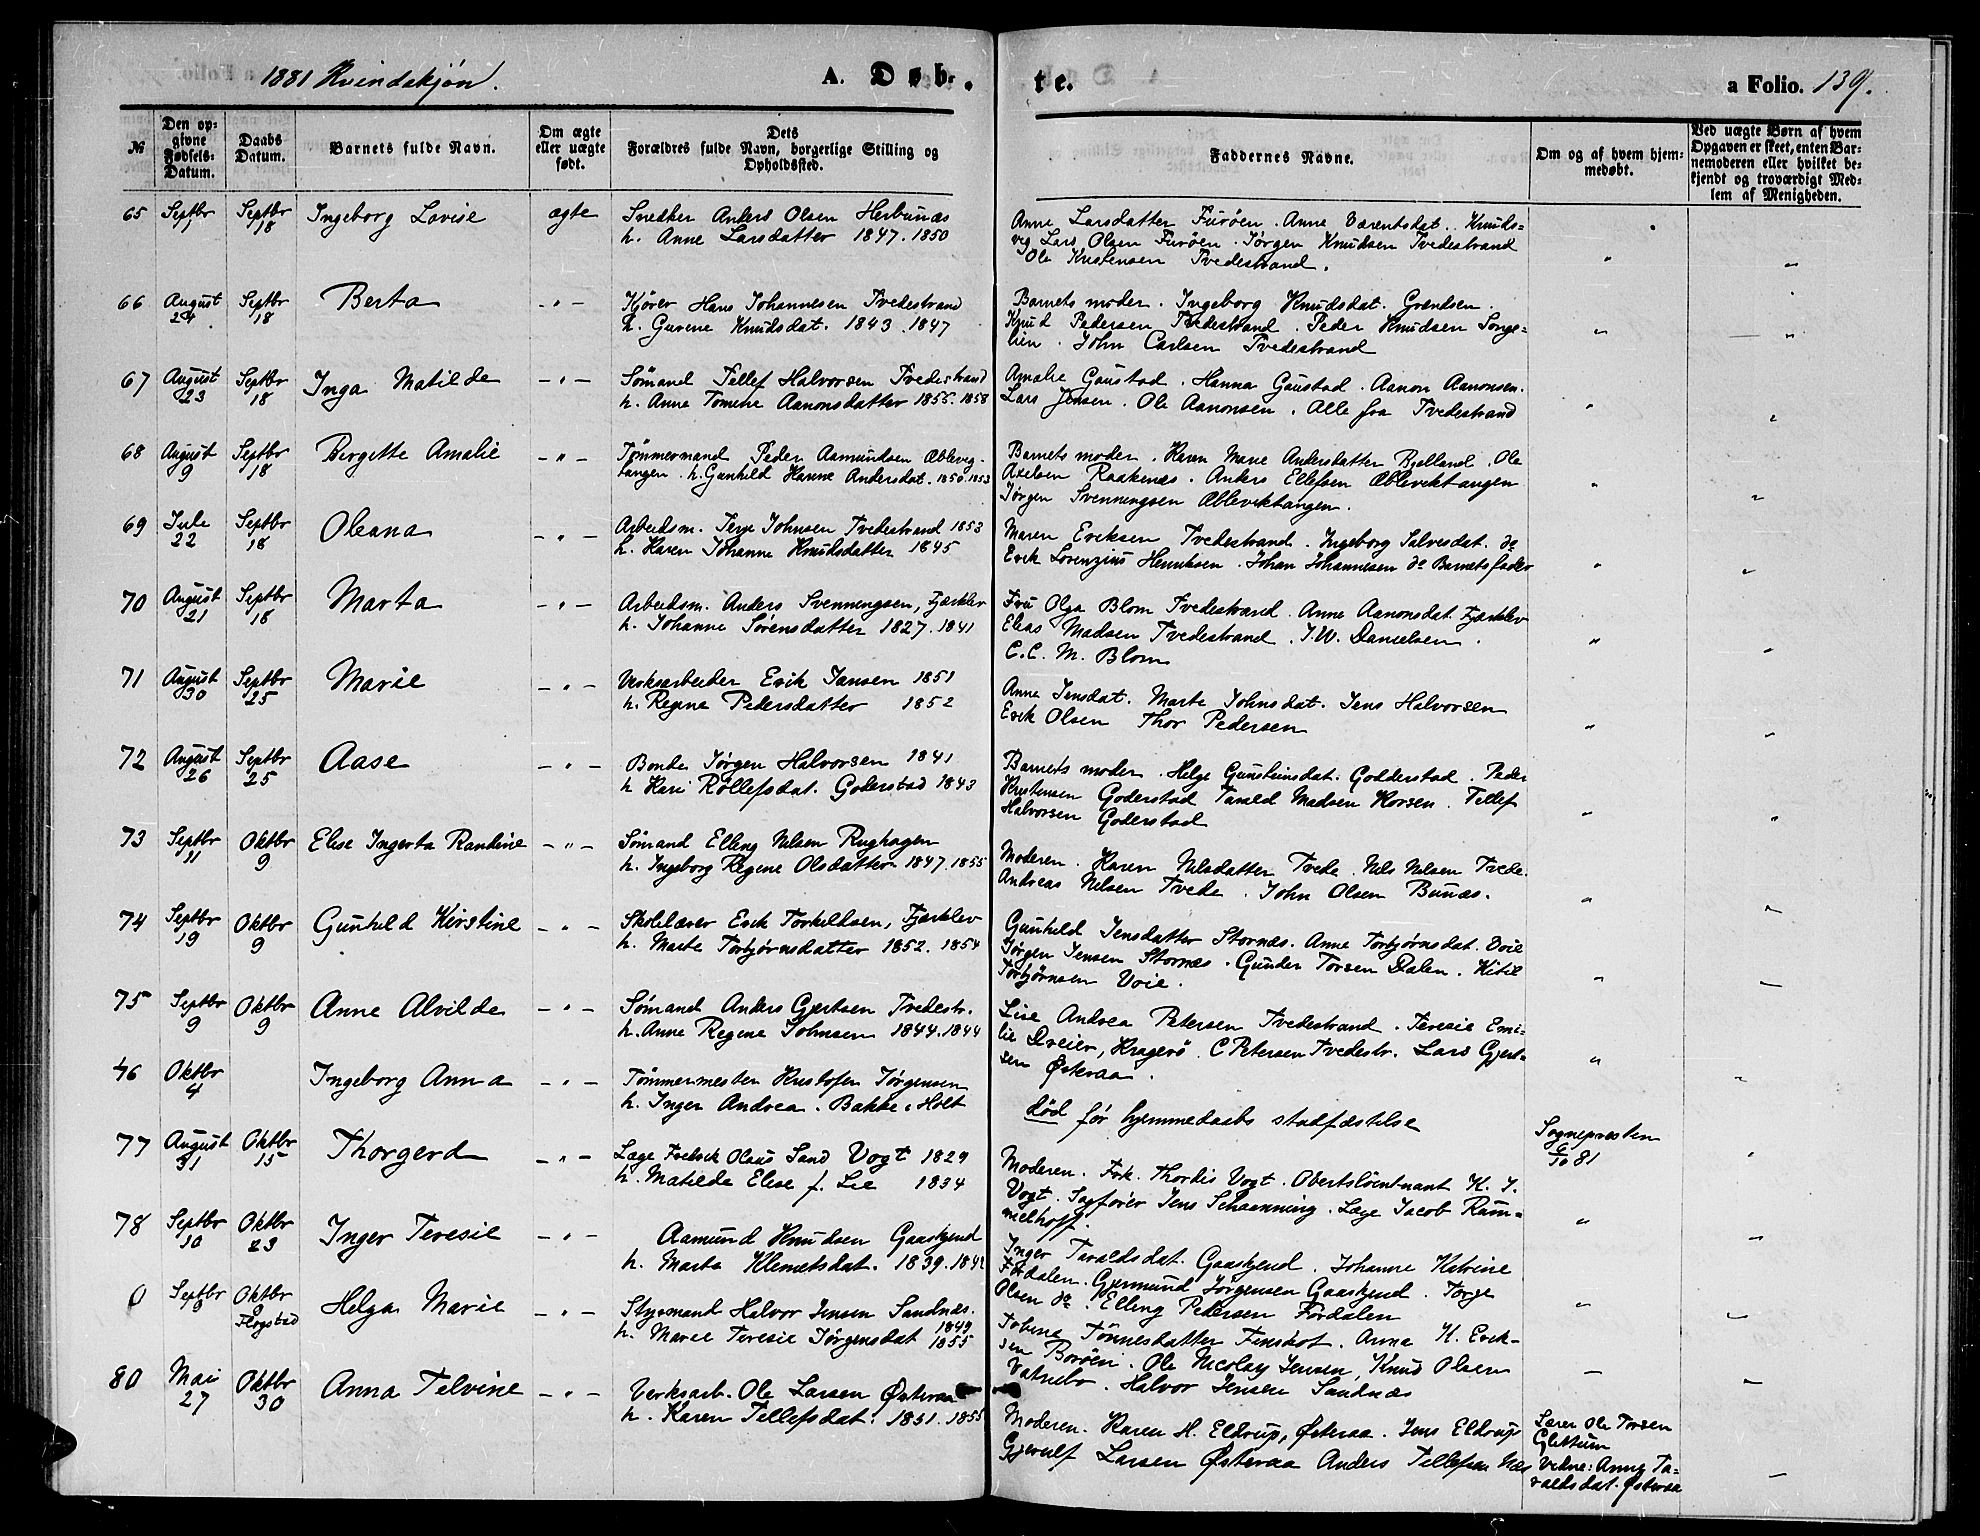 1881 Kvindekjøn.
A. Døb-
№
Den op-
givne
Fødsels-
Datum.
Daabs
Datum.
Barnets fulde Navn.
Om ægte
eller uægte
født.
Dets
Forældres fulde Navn, borgerlige Stilling og
Opholdssted.
65 Septbr 1 Septbr 18 Ingeborg Lovise ægte Snedker Anders Olsen Herbunæs
h. Anne Larsdatter 1847. 1850
66 August 24 Septbr 18 Berta - " - Kjører Hans Johannesen Tvedestrand
h. Gurine Knudsdat. 1843. 1847
67 August 23 Septbr 18 Inga Matilde - " - Sømand Tellef Halvorsen Tvedestrand
h. Anne Tomine Aanonsdatter 1855. 1858
68 August 9 Septbr 18 Birgitte Amalie - " - Tømmermand Peder Aamundsen Ableveg-
tangen. h. Gunhild Hanne Andersdat. 1850. 1853
69 Jule 22 Septbr 18 Oleana - " - Arbeidsm. Terje Johnsen Tvedestrand 1853
h. Karen Johanne Knudsdatter 1845
70 August 21 Septbr 18 Marta - " - Arbeidsm. Anders Svenningsen, Fjærklev
h. Johanne Sørensdatter 1827. 1841
71 August 30 Septbr 25 Marie - " - Verksarbeider Erik Jansen 1851
h. Regine Pedersdatter 1852
72 August 26 Septbr 25 Aase - " - Bonde Jørgen Halvorsen 1841
h Kari Rollefsdat. Goderstad 1843
73 Septbr 11 Oktbr 9 Elise Ingerta Randine - " - Sømand Elling Nilsen Rughagen
h. Ingeborg Regine Olsdatter 1847. 1855
74 Septbr 19 Oktbr 9 Gunhild Kirstine - " - Skolelærer Erik Torkildsen, Fjærklev
h. Marte Torbjørnsdatter 1852. 1854
75 Septbr 9 Oktbr 9 Anne Alvilde - " - Sømand Anders Gjertsen Tvedestr.
h. Anne Regine Johnsen 1844. 1844
76 Oktbr 4 Ingeborg Anna - " - Tømmermester Kristofer Jørgensen
h. Inger Andrea. Bakke i Holt
77 August 31 Oktbr 15 Thorgerd - " - Læge Fredrik Olaus Sand Vogt 1829
h. Matilde Elise f. Lie 1834
78 Septbr 10 Oktbr 23 Inger Teresie - " - Aamund Knudsen Gaaskjend
h. Marte Klemetsdat. 1839. 1842
0 Septbr 9 Oktbr 8 Flogstad Helga Marie - " - Styrmand Halvor Jensen Sandnæs. 1849
h. Marie Teresie Jørgensdat 1855
80 Mai 27 Oktbr 30 Anna Telvine - " - Verksarb. Ole Larsen Østeraa
h. Karen Tellefsdat. 1851. 1855
te.
a Folio. 139.
Faddernes Navne.
Om og af hvem hjem-
medøbt.
Ved uægte Børn af hvem
Opgaven er skeet, enten Bar-
nemoderen eller hvilket be-
kjendt og troværdigt Med-
lem af Menigheden.
Anne Larsdatter Furøen. Anne Barentsdat. Knuds-
vig Lars Olsen Furøen. Jørgen Knudsen Tvedestrand
Ole Kristensen Tvedestrand.
Barnets moder. Ingeborg Knudsdat. Grendsen.
Knud Pedersen Tvedestrand. Peder Knudsen Songe-
lien. John Carlsen Tvedestrand
Amalie Gaustad. Hanna Gaustad. Aanon Aanonsen.
Lars Jensen. Ole Aanonsen. Alle fra Tvedestrand
Barnets moder. Karen Marie Andersdatter Bjelland. Ole
Axelsen Raakenes. Anders Ellefsen Ablevektangen
Jørgen Svenningsen Ablevektangen.
Maren Eriksen Tvedestrand. Ingeborg Salvesdat. do
Erik Lorenzius Henriksen. Johan Johannesen do Barnets fader
Fru Olga Blom Tvedestrand. Anne Aanonsdat. Fjærklev
Elias Madsen Tvedestrand. J. W. Danielsen.
C. C. M. Blom
Anne Jensdat. Marte Johnsdat. Jens Halvorsen
Erik Olsen Thor Pedersen
Barnets moder. Helge Gunsteinsdat. Godderstad. Peder
Kristensen Goderstad Tarald Madsen Korsen. Tellef
Halvorsen Goderstad
Moderen. Karen Nilsdatter Tvede. Nils Nilsen Tvede.
Andreas Nilsen Tvede. John Olsen Bunæs.
Gunhild Jensdatter Stornæs. Anne Torbjørnsdat. Voie
Jørgen Jensen Stornæs. Gunder Torsen Dalen. Kitil
Torbjørnsen Voie.
Lise Andrea Petersen Tvedestrand. Teresie Emi-
lie Dreier, Kragerø. C Petersen Tvedestr. Lars Gjert-
sen Østeraa.
død før hjemmedaabs stadfæstelse
Sognepresten
6/10 81
Moderen. Frk. Thordis Vogt. Oberstløitnant H. J.
Vogt. Sagfører Jens Schanning. Læge Jacob Rum-
melhoff.
Inger Taraldsdat. Gaaskjend. Johanne Katrine
Fordalen. Gjermund Jørgensen Gaaskjend. Terje
Olsen do. Elling Pedersen Fordalen
Tobine Tønnesdatter Finskot. Anne H. Erik-
sen Borøen. Ole Nicolay Jensen, Knud Olsen
Vatnebo. Halvor Jensen Sandnæs
Moderen. Karen H. Eldrup, Østeraa. Jens Eldrup
Gjerulf Larsen Østeraa Anders Tellefsen Næs
Lærer Ole Torsen
Glettum
Vidne: Anne Ta-
raldsdat. Østeraa